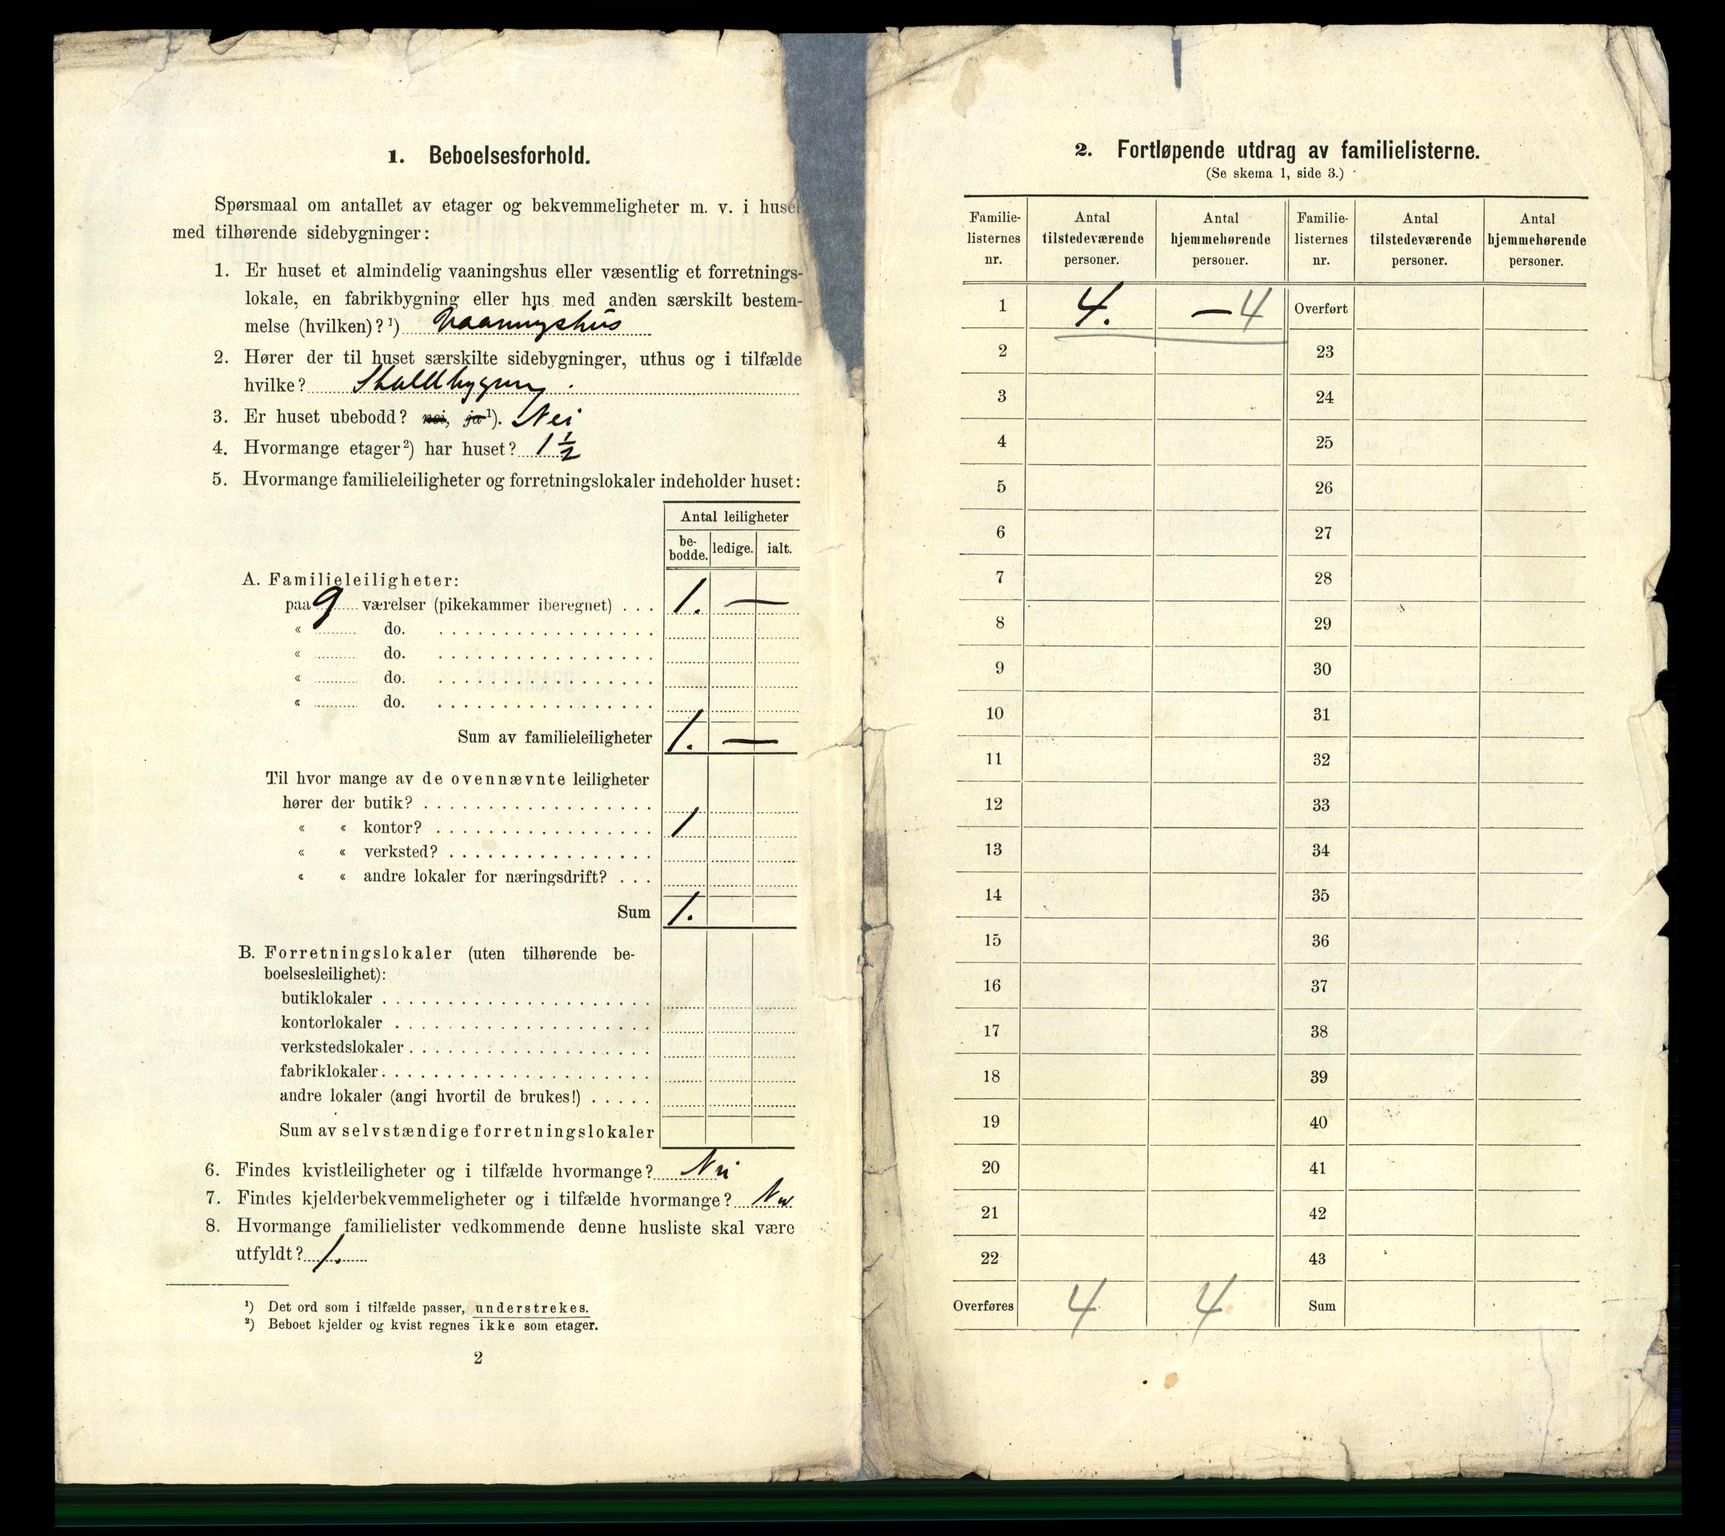 1. Beboelsesforhold.
Spørsmaal om antallet av etager og bekvemmeligheter m. v. i huset
med tilhørende sidebygninger:
1. Er huset et almindelig vaaningshus eller væsentlig et forretnings-
lokale, en fabrikbygning eller hus med anden særskilt bestem-
melse (hvilken)? ¹) Vaaningshus
2. Hører der til huset særskilte sidebygninger, uthus og i tilfælde
hvilke? Staldbygning.
3. Er huset ubebodd? nei, ja ¹). Nei
4. Hvormange etager ²) har huset? 1 1/2
5. Hvormange familieleiligheter og forretningslokaler indeholder huset:
Antal leiligheter
be-
bodde. ledige. ialt.
A. Familieleiligheter:
paa 9 værelser (pikekammer iberegnet) . . . 1. —
« do.
« do.
« do.
« do.
Sum av familieleiligheter 1. —
Til hvor mange av de ovennævnte leiligheter
hører der butik?
« « kontor? 1
« « verksted?
« « andre lokaler for næringsdrift? . . .
Sum 1.
B. Forretningslokaler (uten tilhørende be-
boelsesleilighet):
butiklokaler
kontorlokaler
verkstedslokaler
fabriklokaler
andre lokaler (angi hvortil de brukes!)
Sum av selvstændige forretningslokaler
6. Findes kvistleiligheter og i tilfælde hvormange? Nei
7. Findes kjelderbekvemmeligheter og i tilfælde hvormange? Nei
8. Hvormange familielister vedkommende denne husliste skal være
utfyldt? 1.
¹) Det ord som i tilfælde passer, understrekes.
²) Beboet kjelder og kvist regnes ikke som etager.
2
2. Fortløpende utdrag av familielisterne.
(Se skema 1, side 3.)
Familie- Antal Antal Familie- Antal Antal
listernes tilstedeværende hjemmehørende listernes tilstedeværende hjemmehørende
nr. personer. personer. nr. personer. personer.
1 4. — 4 Overført
2 23
3 24
4 25
5 26
6 27
7 28
8 29
9 30
10 31
11 32
12 33
13 34
14 35
15 36
16 37
17 38
18 39
19 40
20 41
21 42
22 43
Overføres 4 4 Sum